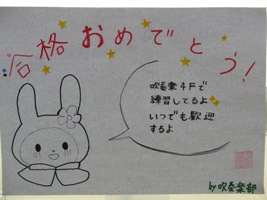 合格おめでとう!
吹奏楽4Fで
練習してるよ
いつでも歓迎
するよ
by吹奏楽部